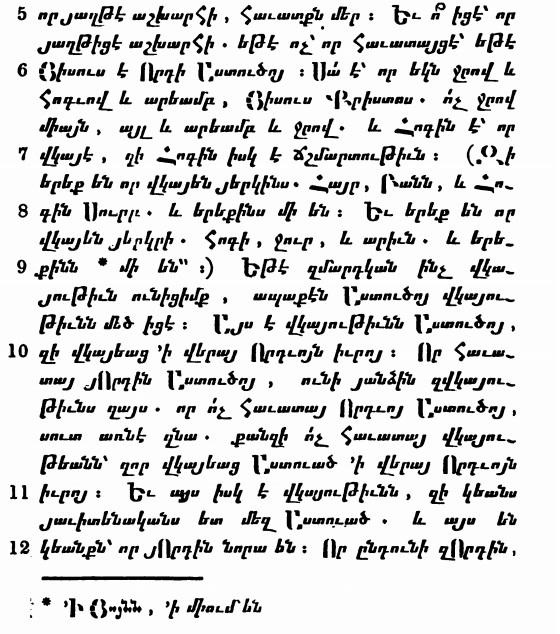 5 որ յաղթէ աշխարհի, հաւատքն մեր։ Եւ ո՞ իցէ՝ որ
յաղթիցէ աշխարհի. եթէ ոչ՝ որ հաւատայցէ՝ եթէ
6 Յիսուս է Որդի Աստուծոյ։ Սա՛ է՝ որ եկն ջրով և
հոգւով և արեամբ, Յիսուս Քրիստոս. ո՛չ ջրով
միայն, այլ և արեամբ և ջրով. և Հոգին է՝ որ
7 վկայէ, զի Հոգին իսկ է ճշմարտութիւն։ (Զի
երեք են որ վկայեն յերկինս. Հայր, Բանն, և Հո-
8 գին Սուրբ. և երեքինս մի են։ Եւ երեք են որ
վկայեն յերկրի. հոգի, ջուր, և արիւն. և երե-
9 քինն * մի են"։) Եթէ զմարդկան ինչ վկա-
յութիւն ունիցիմք, ապաքէն Աստուծոյ վկայու-
թիւնն մեծ իցէ։ Այս է վկայութիւնն Աստուծոյ,
10 զի վկայեաց ՚ի վերայ Որդւոյն իւրոյ։ Որ հաւա-
տայ յՈրդին Աստուծոյ, ունի յանձին զվկայու-
թիւնս զայս. որ ո՛չ հաւատայ Որդւոյ Աստուծոյ,
սուտ առնէ զնա. քանզի ո՛չ հաւատայ վկայու-
թեանն՝ զոր վկայեաց Աստուած ՚ի վերայ Որդւոյն
11 իւրոյ։ Եւ այս իսկ է վկայութիւնն, զի կեանս
յաւիտենականս ետ մեզ Աստուած. և այս են
12 կեանքն՝ որ յՈրդին նորա են։ Որ ընդունի զՈրդին,
* ՚Ի Յոյնն, ՚ի միում են